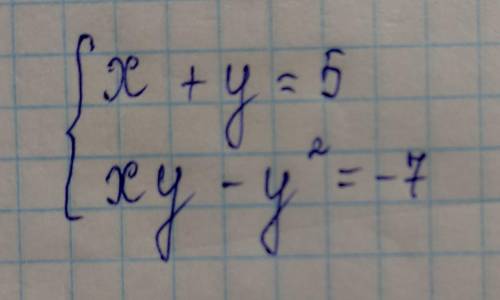 x + y = 5
xy - y² = -7